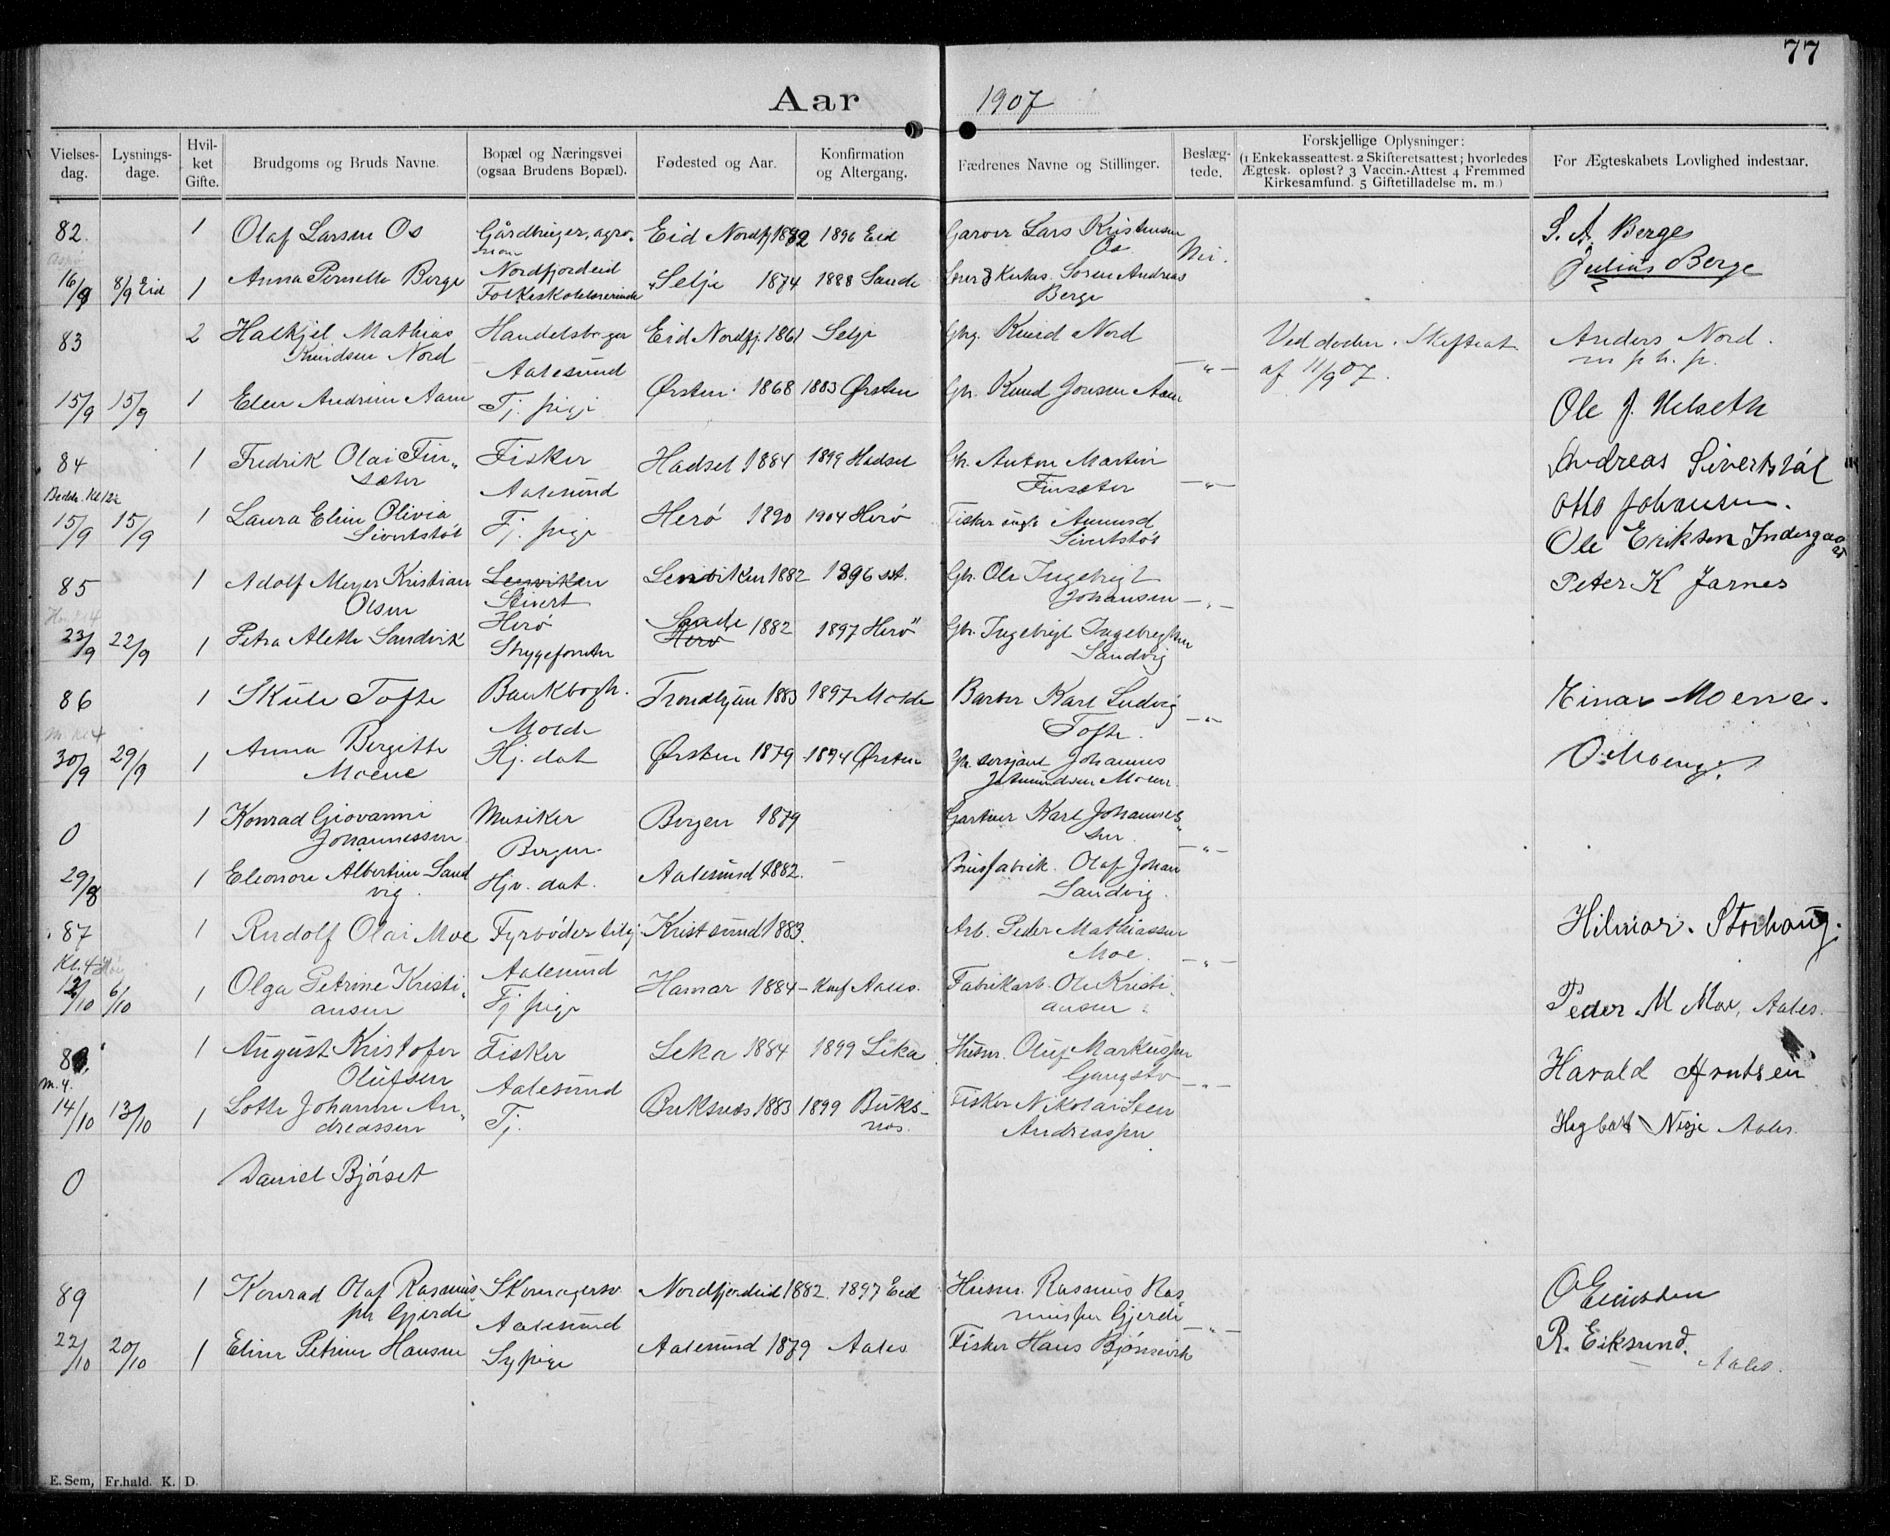 77
Aar 1907
Vielses-dag. Lysnings-dage. Hvil-ket Gifte. Brudgoms og Bruds Navne. Bopæl og Næringsvei (ogsaa Brudens Bopæl). Fødested og Aar. Konfirmation og Altergang. Fædrenes Navne og Stillinger. Beslæg-tede. Forskjellige Oplysninger: (1 Enkekasseattest. 2 Skifteretsattest; hvorledes Ægtesk. opløst? 3 Vaccin.-Attest 4 Fremmed Kirkesamfund. 5 Giftetilladelse m. m.) For Ægteskabets Lovlighed indestaar.
82. 1 Olaf Larsen Os Gårdbruger, agro- Eid Nordfj 1882 1896 Eid Garver Lars Kristensen S. A. Berge
nom Os Nei.
16/9 8/9 Eid 1 Anna Pernella Berge Nordfjordeid Selje 1874 1888 Sande Søren Andreas Julius Berge
Folkeskolelærerinde Berge
83 2 Halkjel Mathias Handelsborger Eid Nordfj. 1861 Selje Gbg. Knud Nord Ved døden. Skifteat Anders Nord.
Knudsen Nord Aalesund -"- af 11/9 07. m p h. p.
15/9 15/9 1 Elen Andrine Aam Tj. pige Ørsten 1868 1883 Ørsten Gbr. Knud Jonsen Aam Ole J. Helseth
84 1 Fredrik Olai Fin- Fisker Hadsel 1884 1899 Hadsel Gbr. Anton Martin Andreas Sivertstøl
sæter Aalesund Finsæter -"-
Bedeh. Kl 12½ Otto Johansen.
15/9 15/9 1 Laura Elin Olivia Tj. pige Herø 1890 1904 Herø Fisker Amund Ole Eriksen Indergaard
Sivertstøl Sivertstøl
85 1 Adolf Meyer Kristian Lenviken Lenviken 1882 1896 sst. Gbr. Ole Ingebrigt Peter K Jarnes
Olsen Stivert Johansen -"-
23/9 22/9 1 Petra Alette Sandvik Herø Sande Herø 1882 1897 Herø Gbr. Ingebrigt Ingebrigtsen
Strygeforretn Sandvig
86 1 Skule Tofte Bankbogh. Trondhjem 1883 1897 Molde Barber Karl Ludvig Einar Moene.
m. kl 4 Molde Tofte. -"-
30/9 29/9 1 Anna Bergitte Hj. dat Ørsten 1879 1894 Ørsten Gbr. sersjant Johannes
Moene Moene
0 1 Konrad Giovanni Musiker Bergen 1879 Gartner Karl Johannes-
Johannessen Bergen sen. -"-
29/8 1 Eleonore Albertine Sand Hjv. dat. Aalesund 1882. - Brusfabrik. Olaf Johan
vig Sandvig.
87 1 Rudolf Olai Moe Fyrbøder Kristsund 1883. Arb. Peder Mathiassen Hilmar. Storhaug.
Kl. 4 Aalesund Moe. -"-
12/10 6/10 1 Olga Petrine Kristi- Tj pige Hamar 1884 - Konf Aales. Fabrikarb. Ole Kristi- Peder M Moe, Aales.
ansen ansen
88. 1 August Kristofer Fisker Leka 1884 1899 Leka Husm. Oluf Markussen Harald Arntsen
m. 4. Olufsen Aalesund Gangstø -"-
14/10 13/10 1 Lotte Johanne An- Tj. Buksnes 1883 1899 Buks- Fisker Nikolai Sten Hagbart Nisje Aales.
dreassen nes. Andreassen
0 Daniel Bjørset
89 1 Konrad Olaf Rasmus- Skomagersv Nordfjordeid 1882. 1897 Eid Husm. Rasmus Ras O Eriksen
sen Gjerde Aalesund mussen Gjerde -"-
22/10 20/10 1 Eline Petrine Hansen Sypige Aalesund 1879 Aales Fisker Hans Bjørnevik R. Eiksund.
Aales.
E. Sem, Fr.hald. K. D.